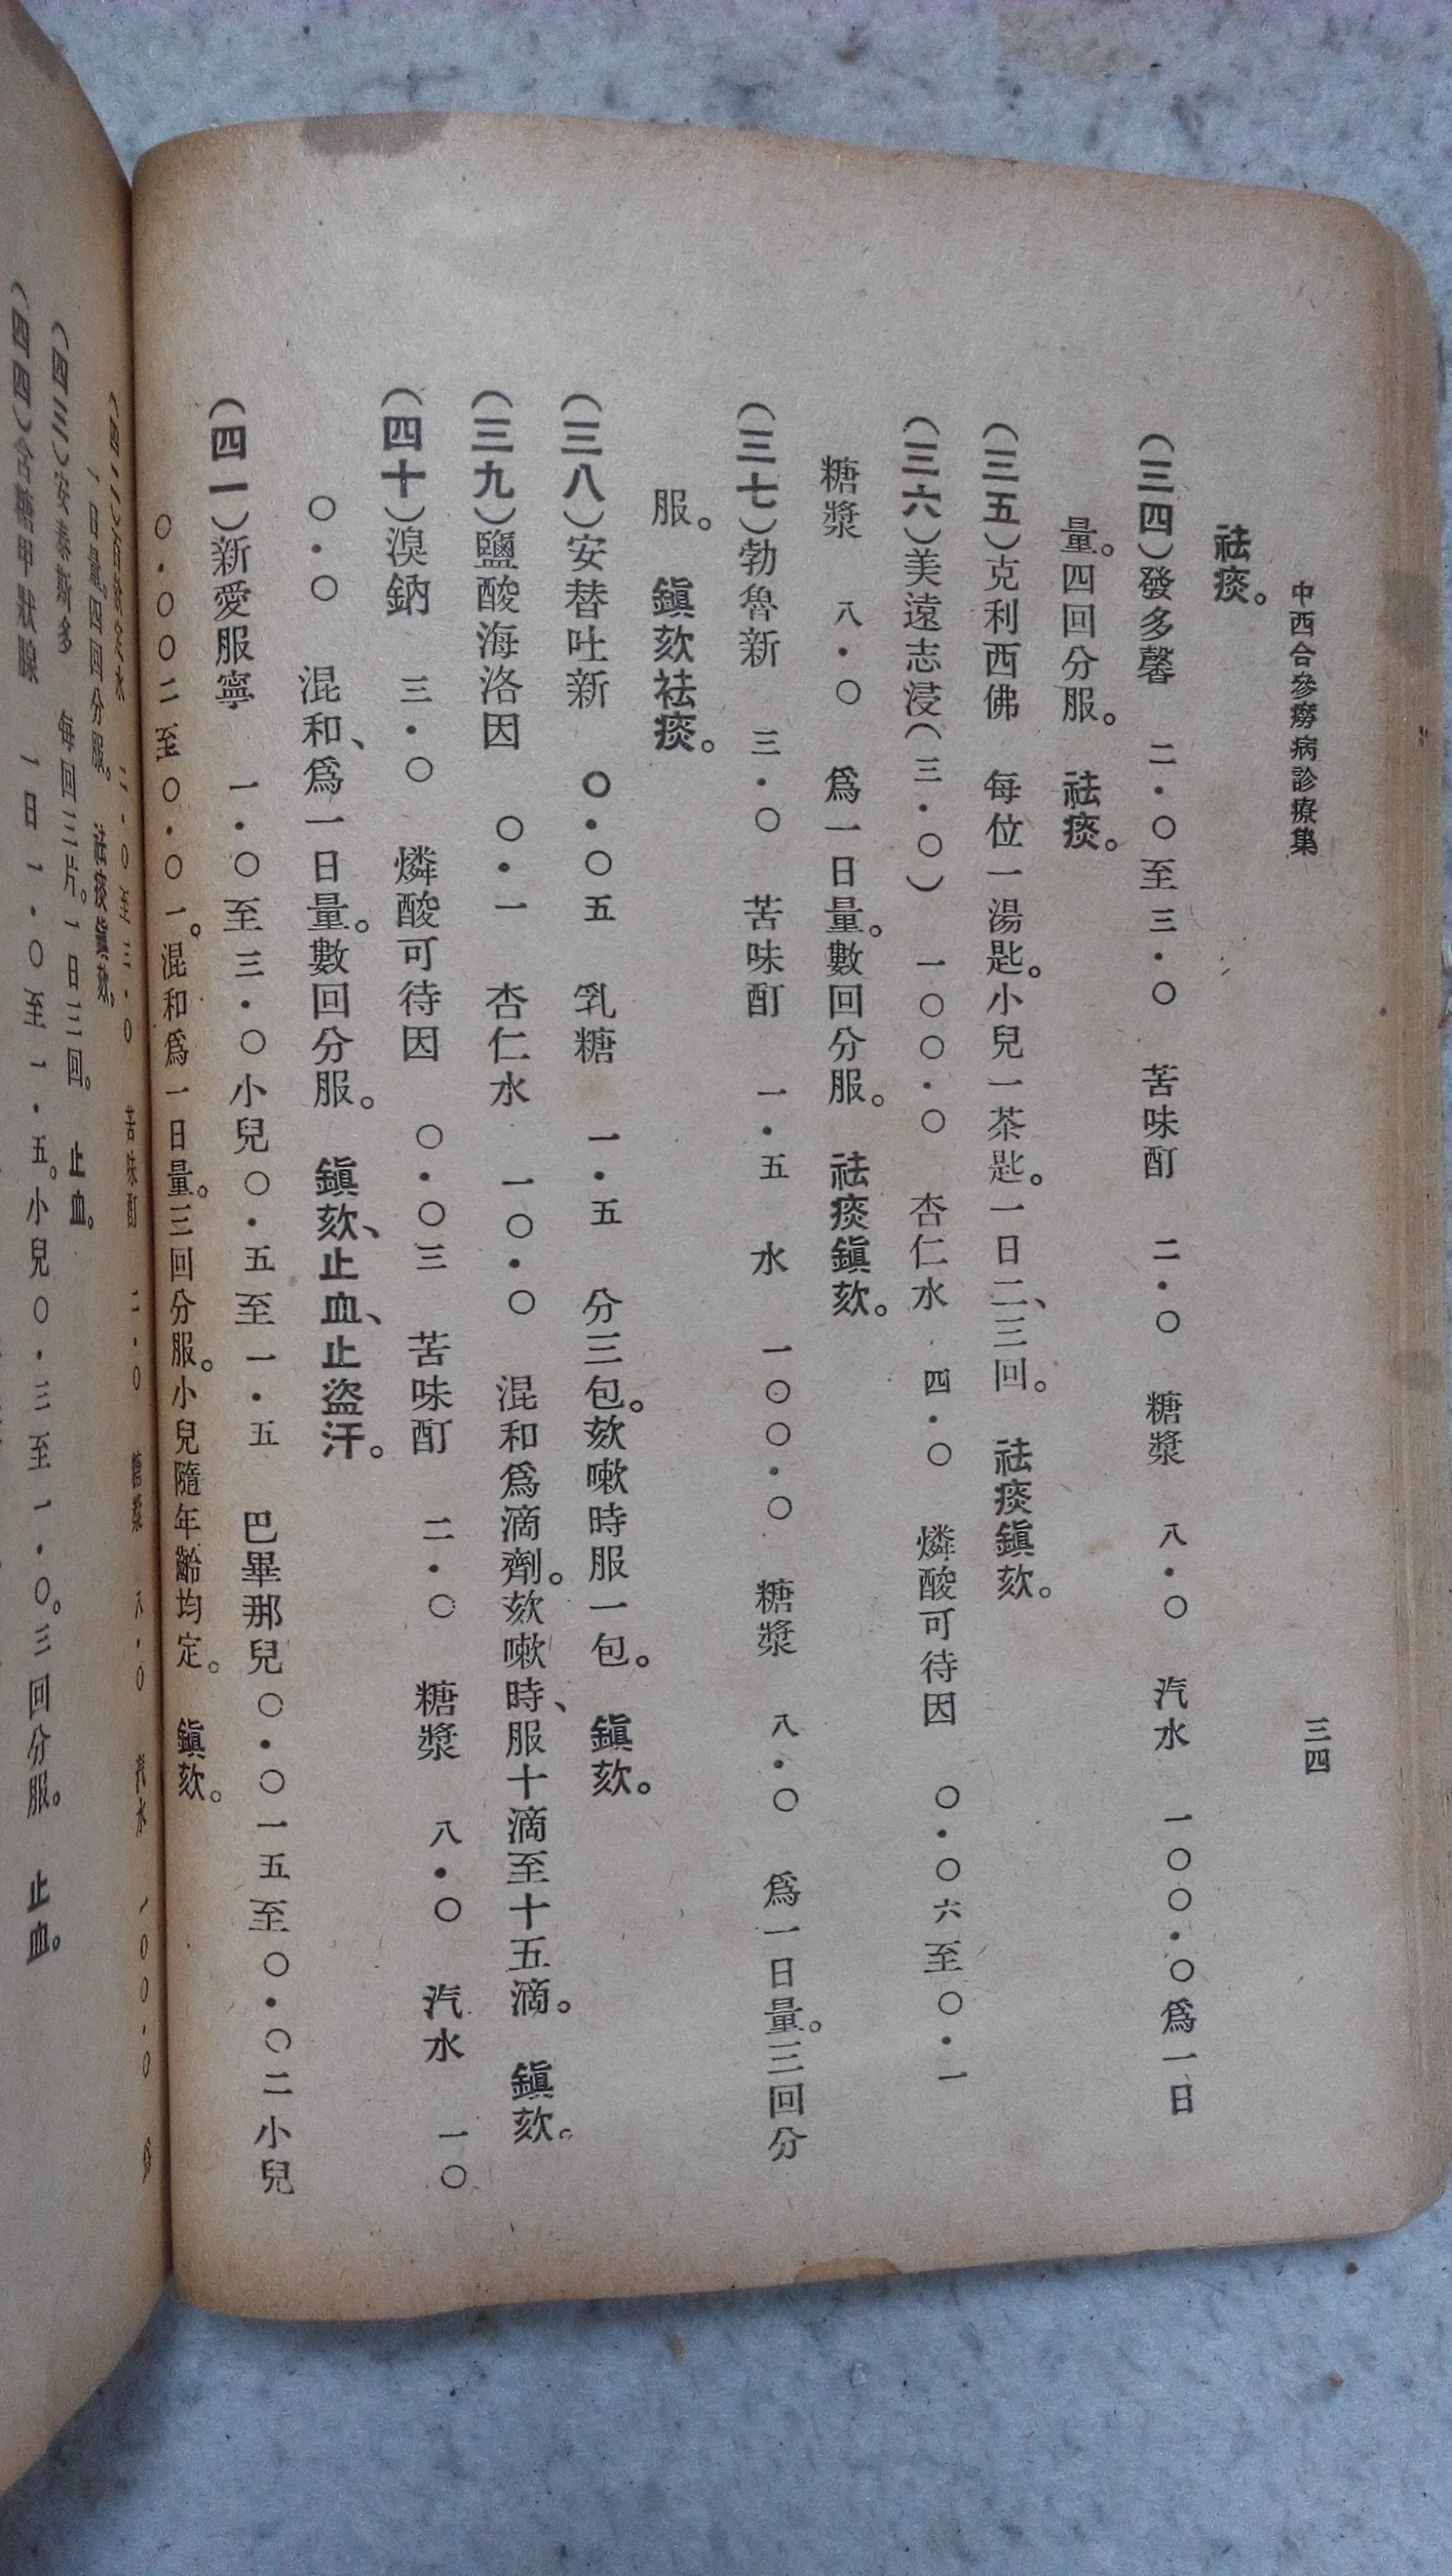 中西合參癆病診療集
三四
祛痰。
(三四)發多馨　二・〇至三・〇　苦味酊　二・〇　糖漿　八・〇　汽水　一〇〇・〇爲一日
量。四回分服。　祛痰。
(三五)克利西佛　每位一湯匙。小兒一茶匙。一日二、三回。　祛痰鎭欬。
(三六)美遠志浸(三・〇)　一〇〇・〇　杏仁水　四・〇　燐酸可待因　〇・〇六至〇・一
糖漿　八・〇　爲一日量。數回分服。　祛痰鎭欬。
(三七)勃魯新　三・〇　苦味酊　一・五　水　一〇〇・〇　糖漿　八・〇　爲一日量。三回分
服。　鎭欬祛痰。
(三八)安替吐新　〇・〇五　乳糖　一・五　分三包。欬嗽時服一包。　鎭欬。
(三九)鹽酸海洛因　〇・一　杏仁水　一〇・〇　混和爲滴劑。欬嗽時、服十滴至十五滴。　鎭欬。
(四十)溴鈉　三・〇　燐酸可待因　〇・〇三　苦味酊　二・〇　糖漿　八・〇　汽水　一〇
〇・〇　混和、爲一日量。數回分服。　鎭欬、止血、止盜汗。
(四一)新愛服寧　一・〇至三・〇小兒〇・五至一・五　巴畢那兒〇・〇一五至〇・〇二小兒
〇・〇〇二至〇・〇一。混和爲一日量。三回分服。小兒隨年齡均定。　鎭欬。
二・〇至三・〇　苦味酊　二・〇　糖漿　八・〇　汽水　一〇〇・〇　爲
一日量。四回分服。　祛痰鎭欬。
(四三)安泰斯多　每回三片。一日三回。　止血。
(四四)含糖甲狀腺　一日一・〇至一・五。小兒〇・三至一・〇。三回分服。　止血。